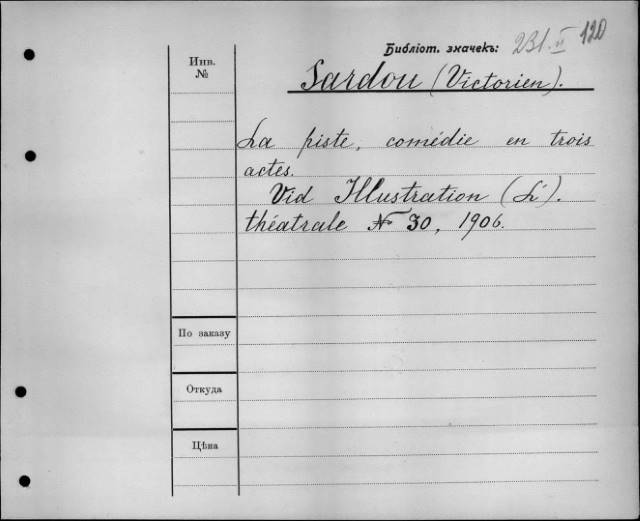 Библіот. значекъ: 231.II 120
Инв.
№
Sardou (Victorien).
La piste, comédie en trois
actes.
Vid Illustration (L').
théatrale № 30, 1906.
По заказу
Откуда
Цѣна